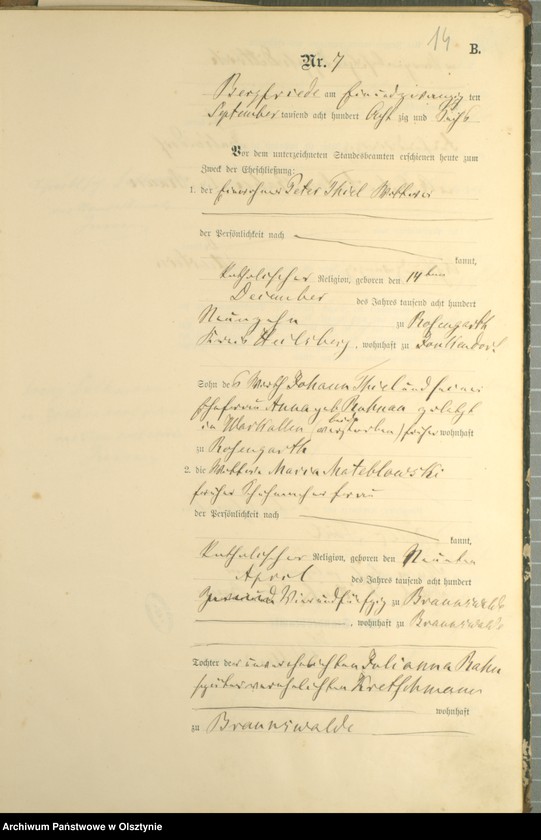 14
B.
Nr. 7
Bergfriede am einundzwanzig ten
September tausend acht hundert Acht zig und Sechs
Vor dem unterzeichneten Standesbeamten erschienen heute zum
Zweck der Eheschließung:
1. der Einwohner Peter Thiel Wittwer
der Persönlichkeit nach
kannt,
katholischer Religion, geboren den 14 ten
December des Jahres tausend acht hundert
Neunzehn zu Rosengarth
Kreis Heilsberg, wohnhaft zu Jonkendorf
Sohn des Wirth Johann Thiel und seiner
Ehefrau Anna geb. zuletzt
in Warkallen (beide verstorben) früher wohnhaft
zu Rosengarth
2. die Wittwe Maria Mateblowski
früher Schuhmacherfrau
der Persönlichkeit nach
kannt,
katholischer Religion, geboren den Neunten
April des Jahres tausend acht hundert
Vierundfünfzig zu Braunswalde
, wohnhaft zu Braunswalde
Tochter der unverehelichten Julianna Rahn
später verehelichten Kretschmann
wohnhaft
zu Braunswalde
Archiwum Państwowe w Olsztynie